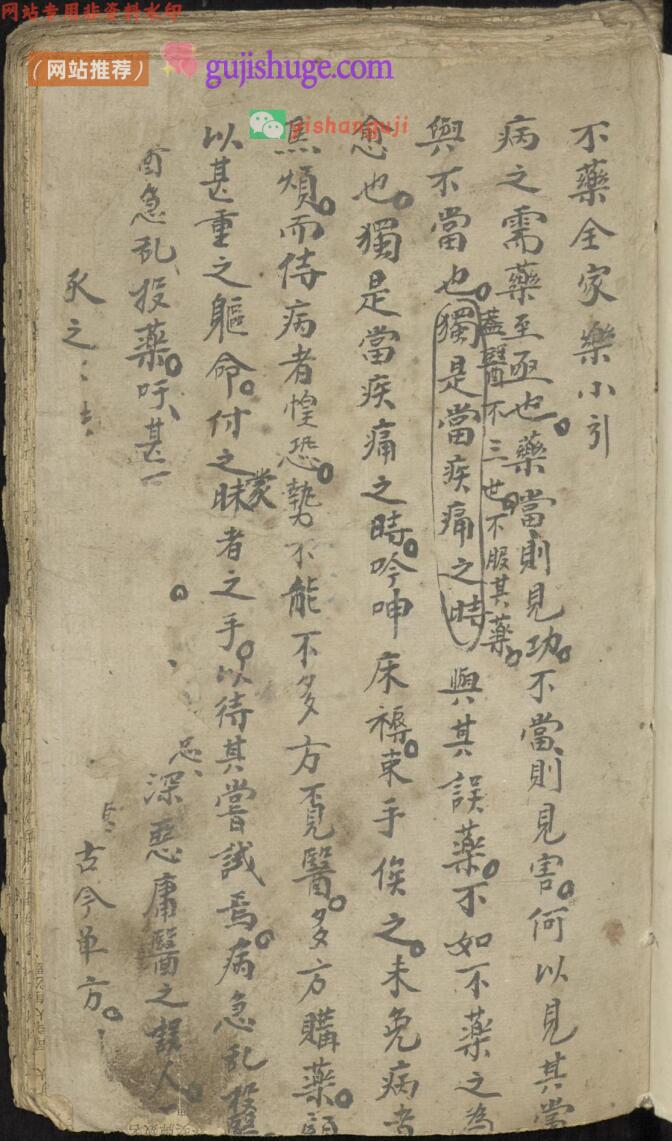 网站专用非资料水印
(网站推荐)
gujishuge.com
yishanguji
不藥全家樂小引
病之需藥至亟也。藥當則見功。不當則見害。何以見其當
蓋醫不三世。不服其藥。
與不當也。獨是當疾痛之時與其誤藥。不如不藥之為
愈也。獨是當疾痛之時。吟呻床褥。束手俟之。未免病者
焦煩。而侍病者惶恐。勢不能不多方覓醫。多方購藥。
以甚重之軀命。付之昧者之手。以待其嘗試焉。病急乱投醫
蒙
急乱投藥。吁、甚
深惡庸醫之誤人
之
古今单方。